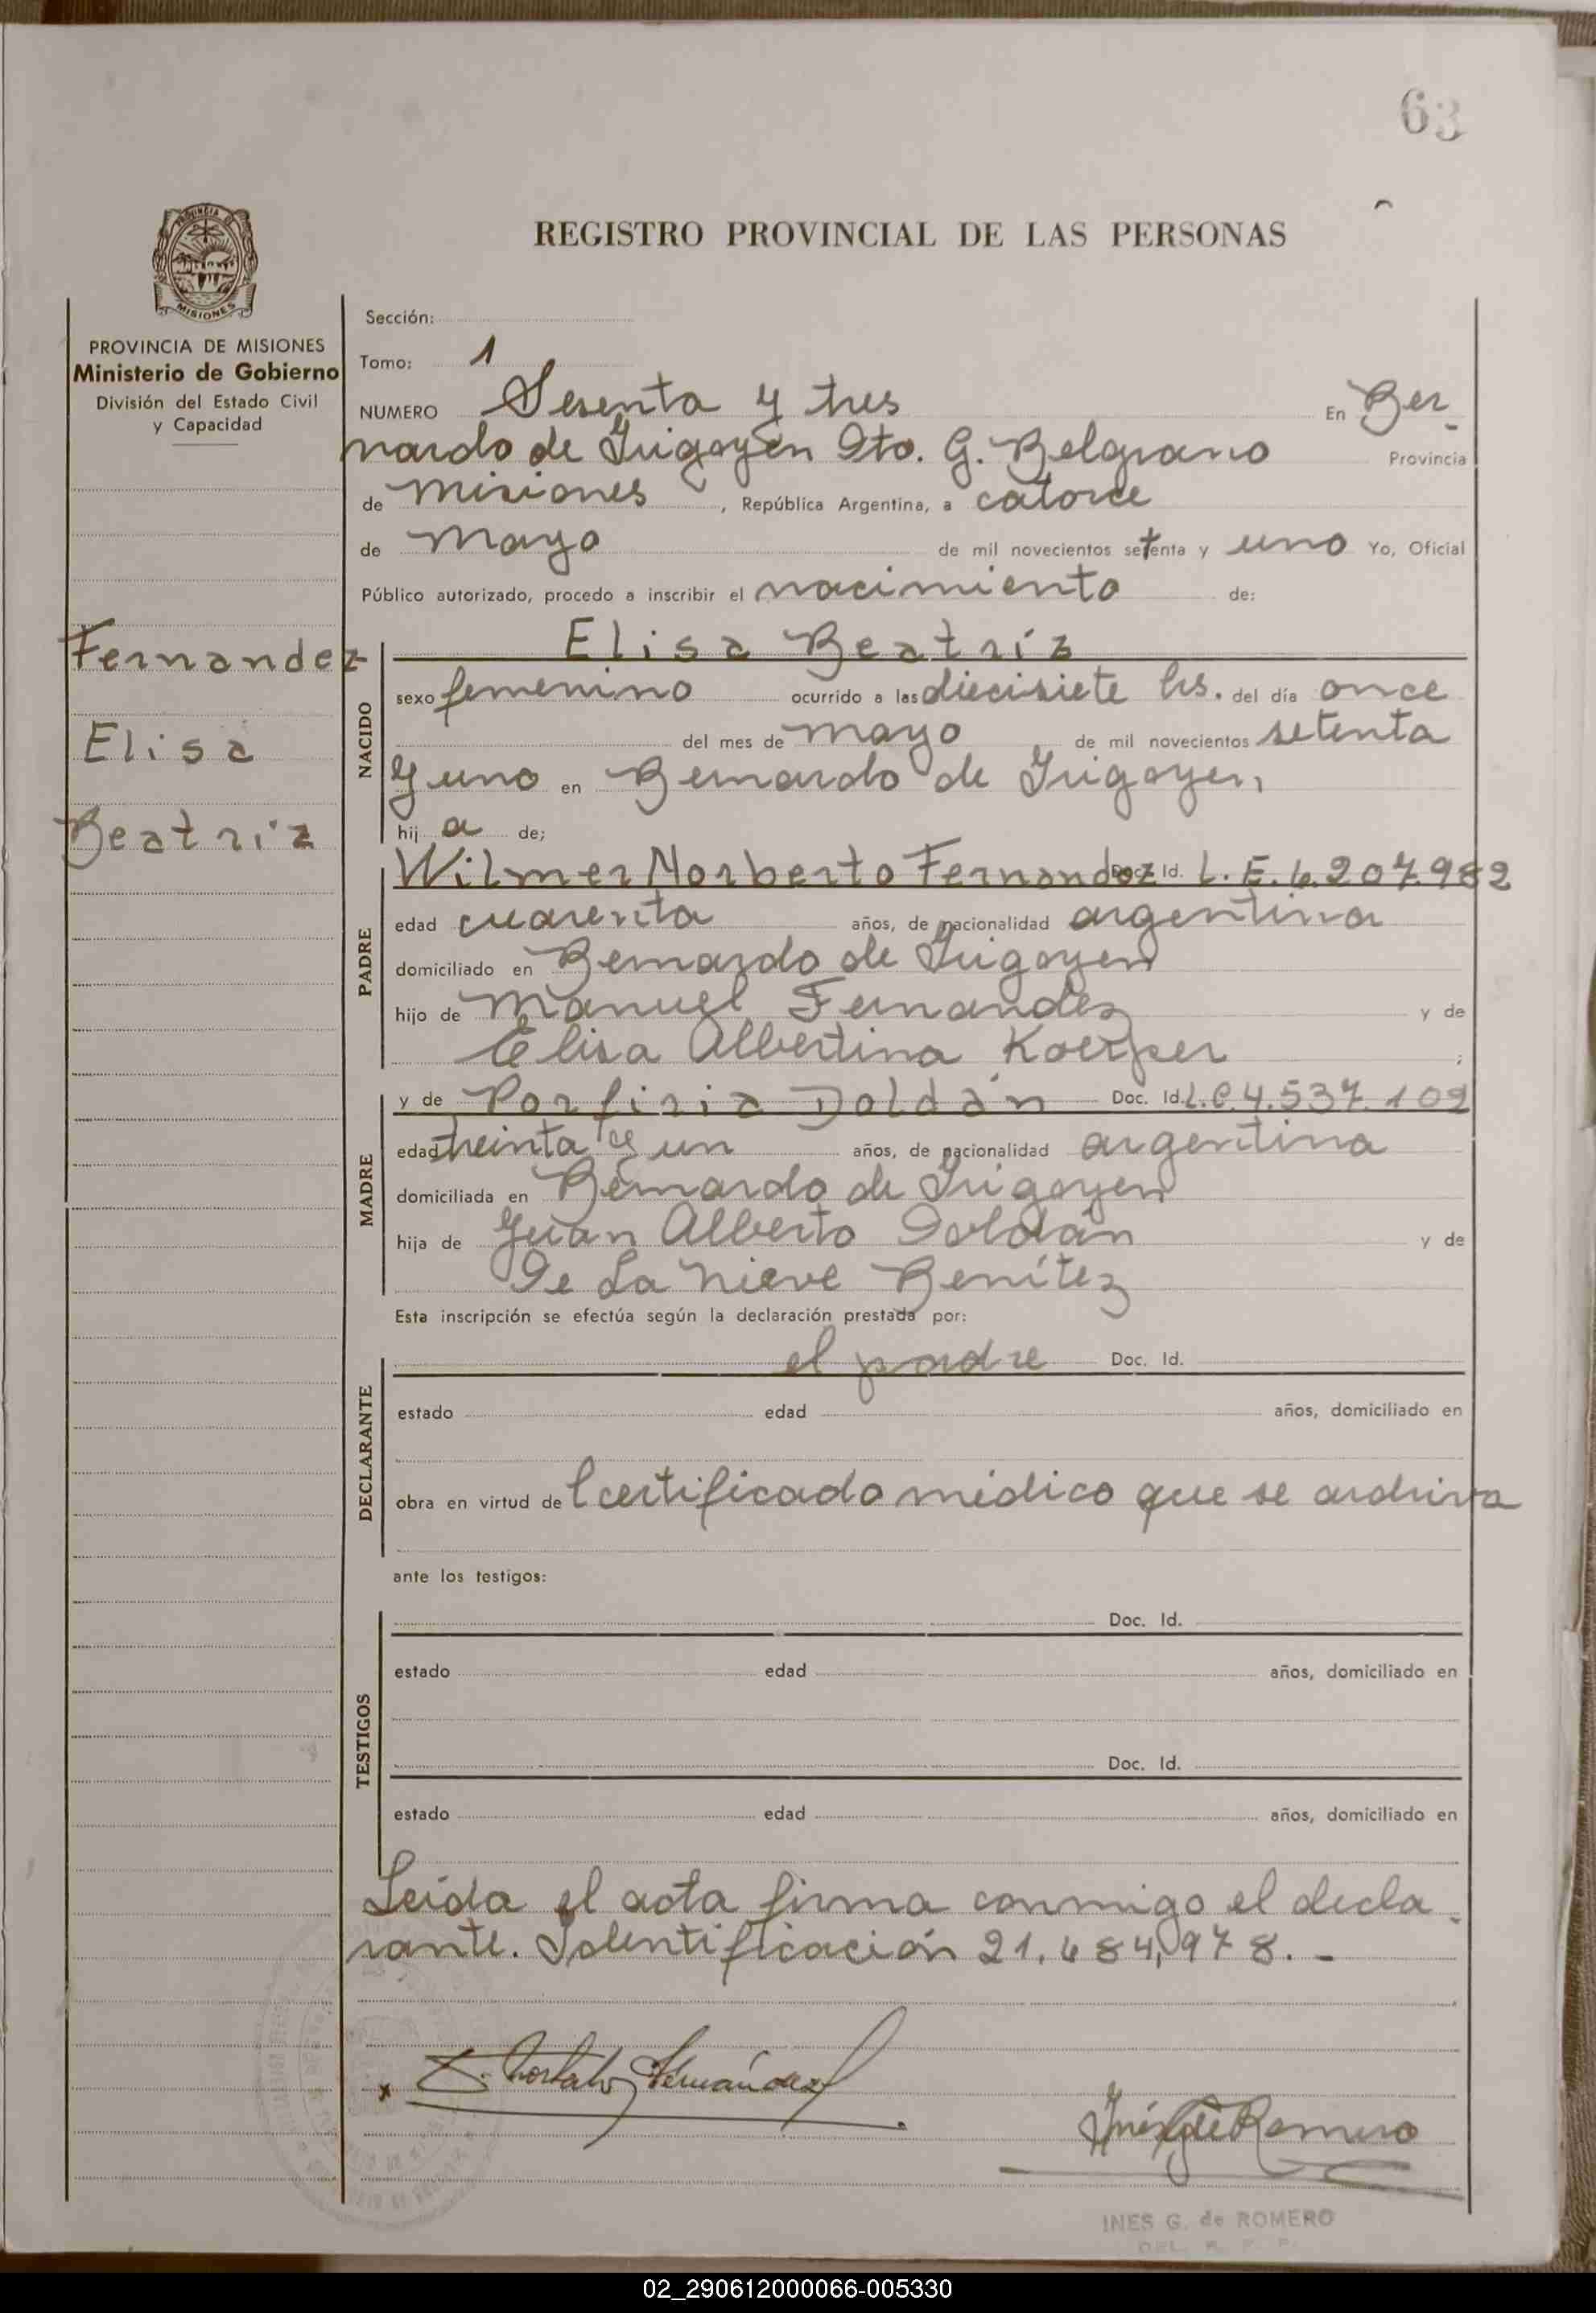 63
REGISTRO PROVINCIAL DE LAS PERSONAS
MISIONES
PROVINCIA DE MISIONES
Ministerio de Gobierno
División del Estado Civil
y Capacidad
Fernandez
Elisa
Beatriz
Sección:
Tomo: 1
NUMERO Sesenta y tres En Ber-
nardo de Irigoyen Dto. G. Belgrano Provincia
de misiones, República Argentina, a catorce
de mayo de mil novecientos setenta y uno Yo, Oficial
Público autorizado, procedo a inscribir el nacimiento de:
Elisa Beatríz
NACIDO
sexo femenino ocurrido a las diecisiete hs. del día once
del mes de mayo de mil novecientos setenta
y uno en Bernardo de Irigoyen,
hij a de;
PADRE
Wilmer Norberto Fernandez Doc. Id. L.E. 6.207.982
edad cuarenta años, de nacionalidad argentina
domiciliado en Bernardo de Irigoyen
hijo de Manuel Fernandez y de
Elisa Albertina Koerper ;
MADRE
y de Porfiria Doldán Doc. Id. L.C. 4.537.109
edad treinta y un años, de nacionalidad argentina
domiciliada en Bernardo de Irigoyen
hija de Juan Alberto Doldán y de
De La Nieve Benítez
Esta inscripción se efectúa según la declaración prestada por:
DECLARANTE
el padre Doc. Id.
estado edad años, domiciliado en
obra en virtud de l certificado médico que se archiva
ante los testigos:
TESTIGOS
Doc. Id.
estado edad años, domiciliado en
Doc. Id.
estado edad años, domiciliado en
Leída el acta firma conmigo el decla-
rante. Identificación 21.684,978.-
Fernández
Inés G de Romero
INES G. de ROMERO
DEL. R. P. P.
02_290612000066-005330